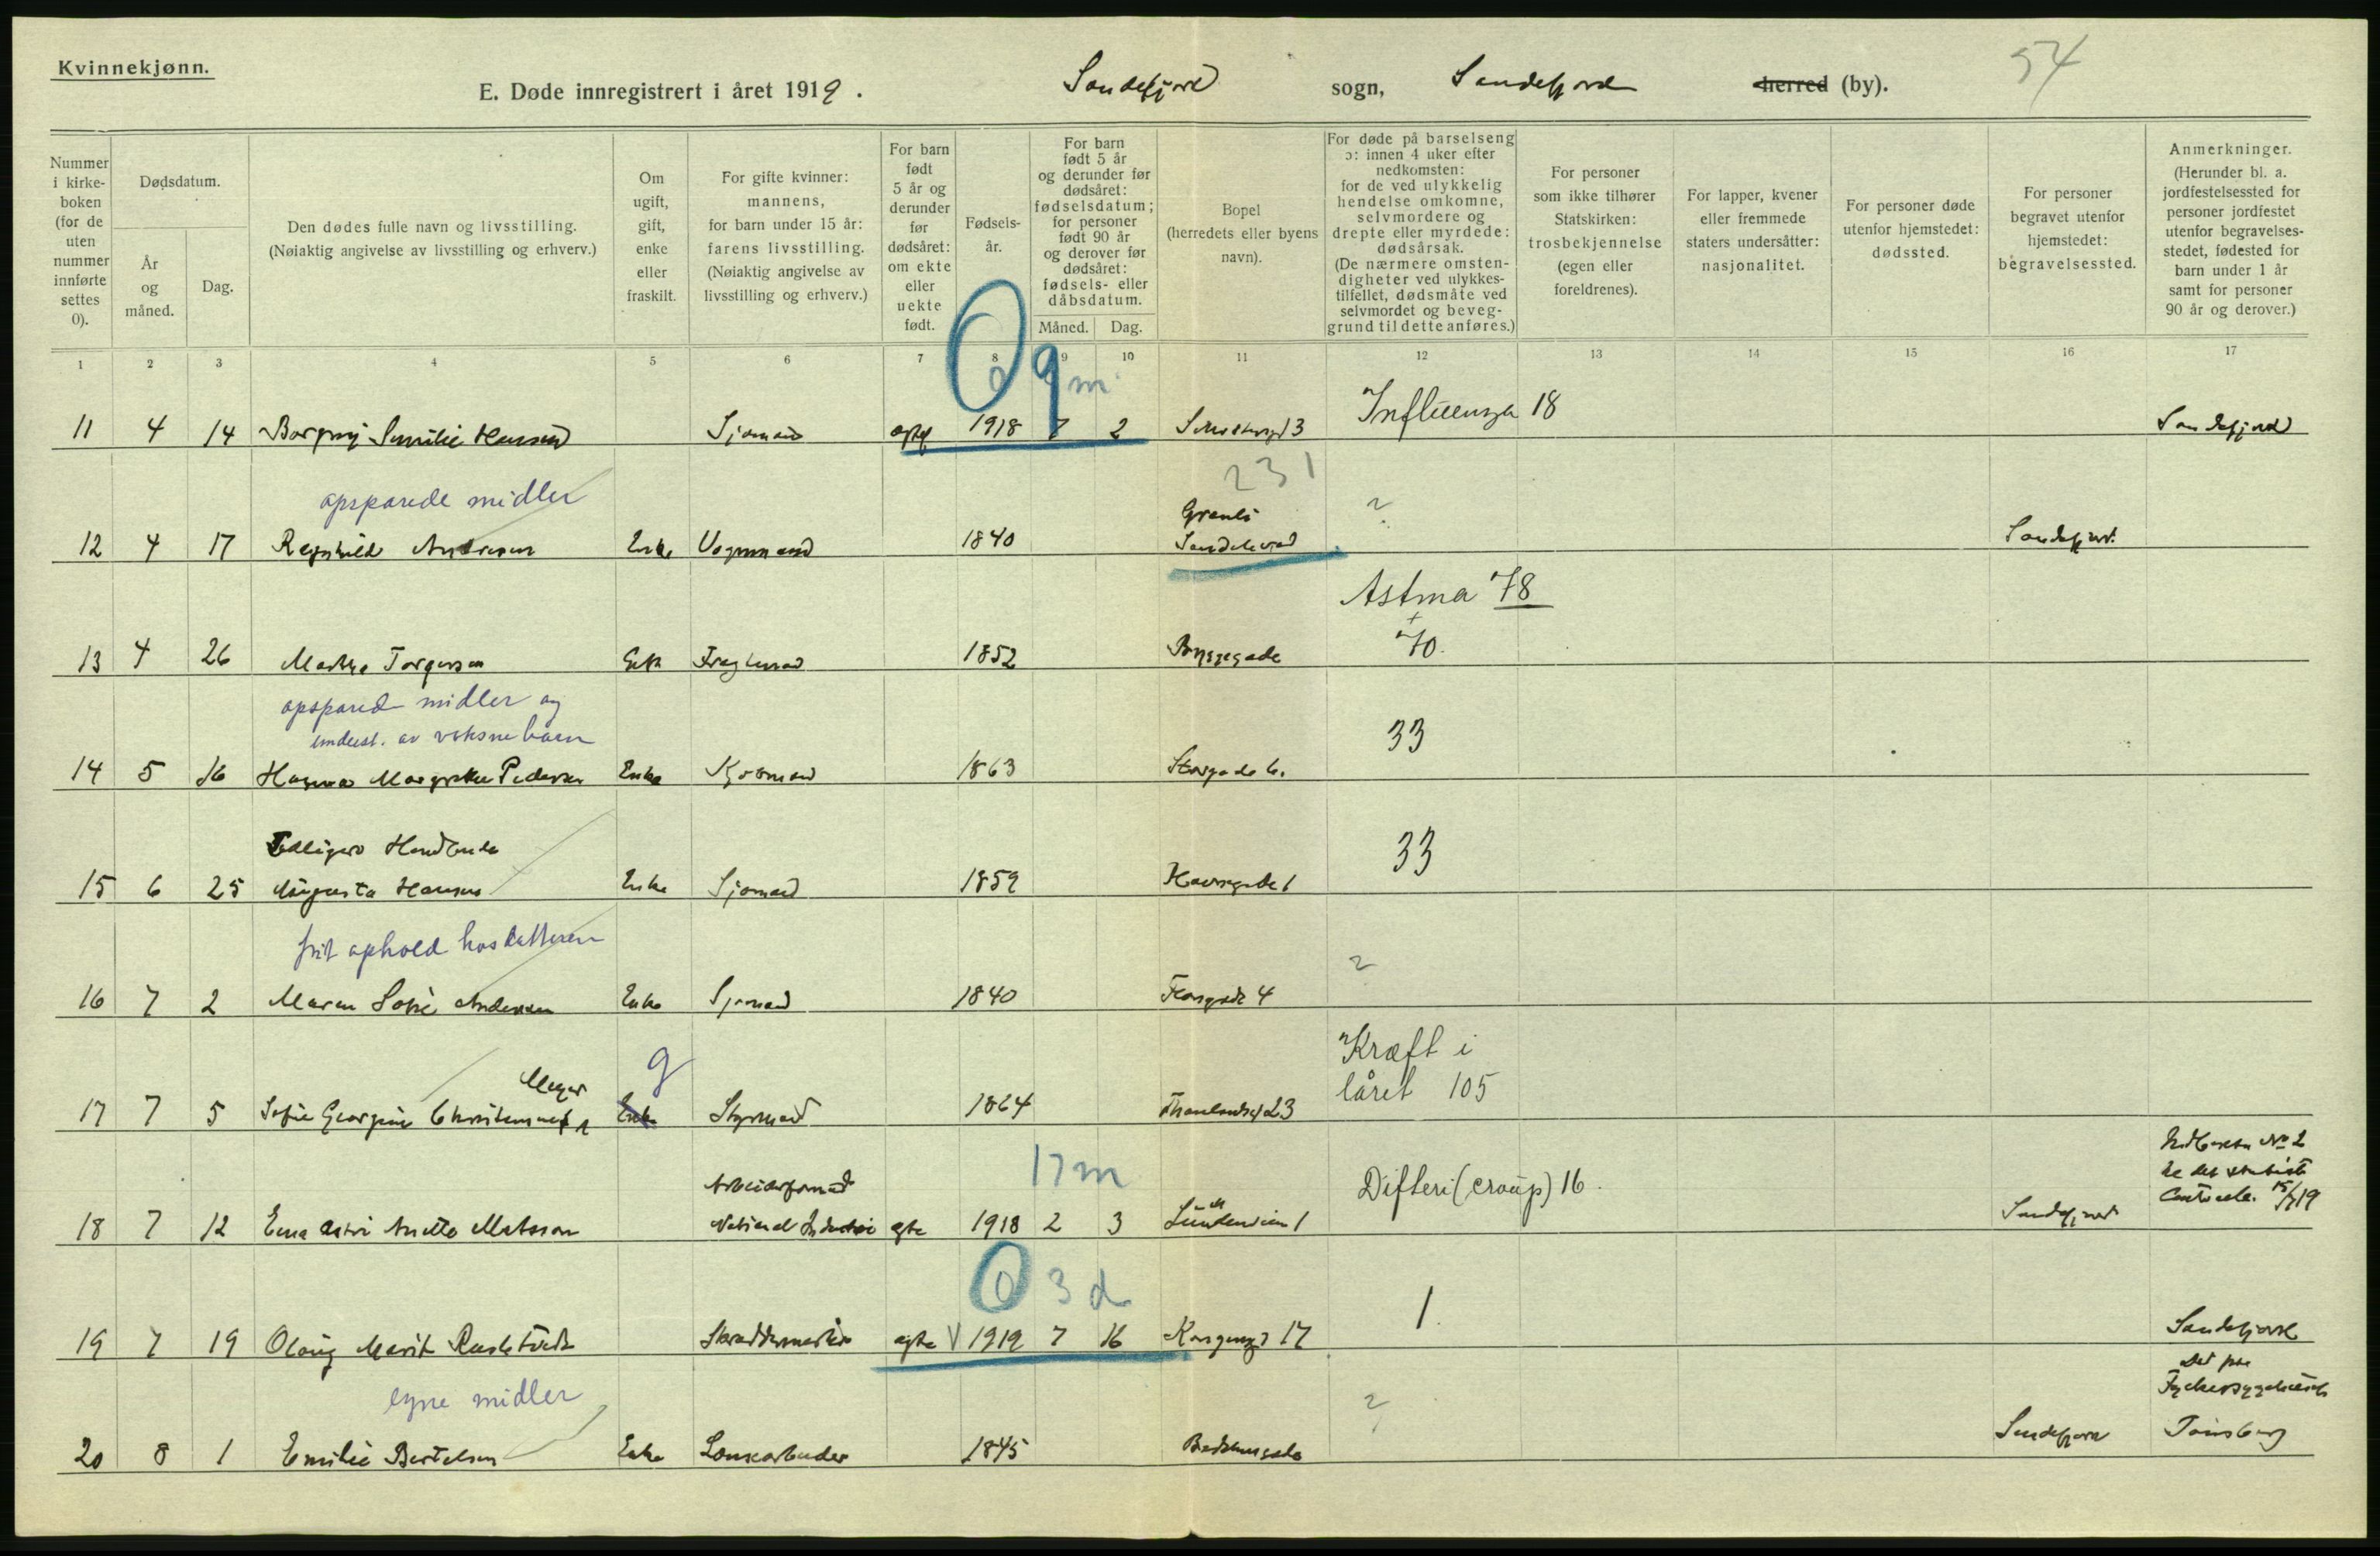 Kvinnekjønn.
E. Døde innregistrert i året 1919.
Sandefjord sogn, Sandefjord herred (by).
54
Nummer i kirke- boken (for de uten nummer innførte settes 0).
Dødsdatum.
År og måned.
Dag.
Den dødes fulle navn og livsstilling.
(Nøiaktig angivelse av livsstilling og erhverv.)
Om ugift, gift, enke eller fraskilt.
For gifte kvinner: mannens, for barn under 15 år: farens livsstilling. (Nøiaktig angivelse av livsstilling og erhverv.)
For barn født 5 år og derunder før dødsåret: om ekte eller uekte født.
Fødsels- år.
For barn født 5 år og derunder før dødsåret: fødselsdatum; for personer født 90 år og derover før dødsåret: fødsels- eller dåbsdatum.
Måned. Dag.
Bopel (herredets eller byens navn).
For døde på barselseng ɔ: innen 4 uker efter nedkomsten: for de ved ulykkelig hendelse omkomne, selvmordere og drepte eller myrdede: dødsårsak. (De nærmere omsten- digheter ved ulykkes- tilfellet, dødsmåte ved selvmordet og beveg- grund til dette anføres.)
For personer som ikke tilhører Statskirken: trosbekjennelse (egen eller foreldrenes).
For lapper, kvener eller fremmede staters undersåtter: nasjonalitet.
For personer døde utenfor hjemstedet: dødssted.
For personer begravet utenfor hjemstedet: begravelsessted.
Anmerkninger. (Herunder bl. a. jordfestelsessted for personer jordfestet utenfor begravelses- stedet, fødested for barn under 1 år samt for personer 90 år og derover.)
1 2 3 4 5 6 7 8 9 10 11 12 13 14 15 16 17
0 9 m
11 4 14 Hansen Sjømand 1918 7 2 Influenza 18 Sandefjord
opsparede midler
231
12 4 17 Ragnhild Andresen Enke Vognmand 1840 Granli Sandeherred ? Sandefjord
Astma 78
+
70.
13 4 26 Marthe Torgersen Enke 1852 Byggegade
opsparede midler og
underst. av voksne barn
14 5 16 Hanna Margrethe Pedersen Enke 1863 Storgade 6. 33
Tidligere
15 6 25 Augusta Hansen Enke Sjømand 1859 33
frit ophold hos datteren
16 7 2 Maren Sofie Andersen Enke Sjømand 1840 4 ?
g
Meyer
Kræft i
låret 105
17 7 5 Sofie Georgine Christensen Enke Styrmand 1864 23
17 m
18 7 12 Matsson National Industri egte 1918 2 3 1 Difteri (croup) 16. Sandefjord 15/7 19
0 3 d
19 7 19 Olaug Marit Skræddermester egte V 1919 7 16 Kongensgd 17 1. Sandefjord
egne midler
20 8 1 Emilie Bertelsen Enke Løsarbeider 1845 ? Sandefjord Tønsberg